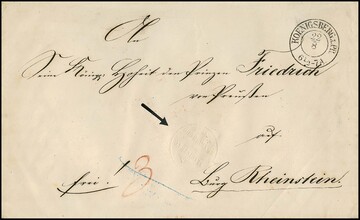 An
Seine Königl. Hoheit den Prinzen Friedrich
von Preußen
auf
Burg Rheinstein.
frei.
3
KOENIGSBERG I. PR.
22
8
6½-7A